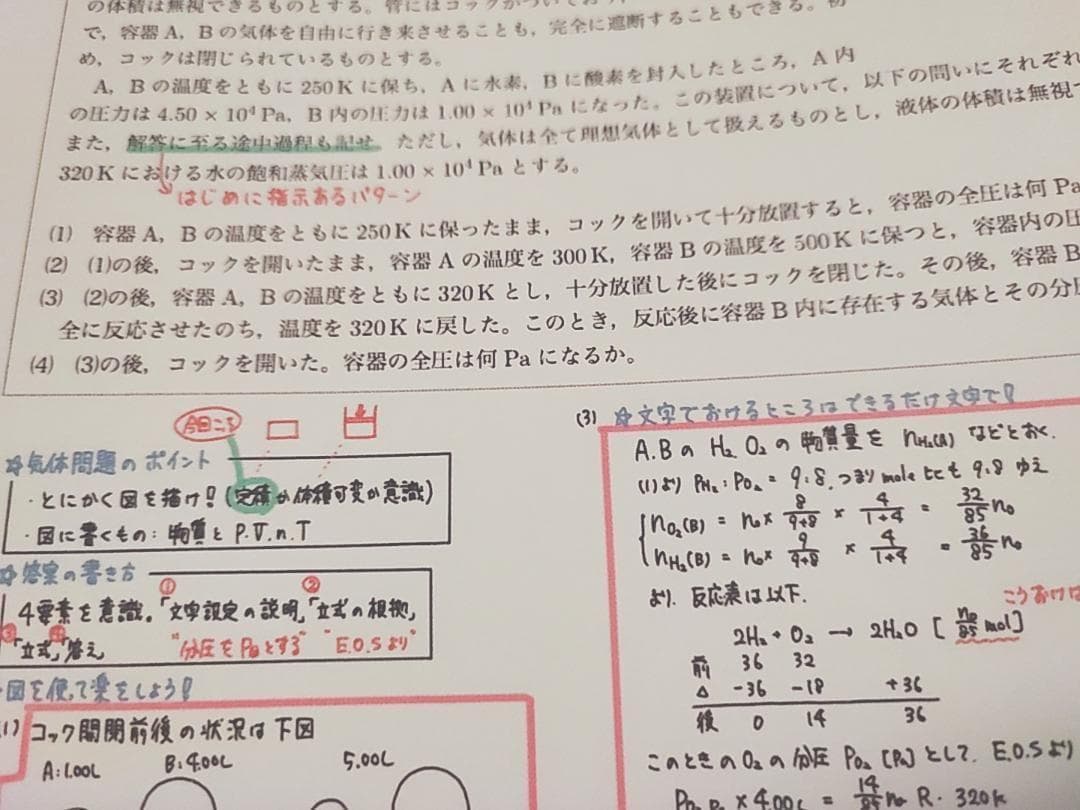 の体積は無視できるものとする。管にはコックが
で，容器 A，B の気体を自由に行き来させることも，完全に遮断することもできる。初
め，コックは閉じられているものとする。
A，B の温度をともに 250 K に保ち，A に水素，B に酸素を封入したところ，A 内
の圧力は 4.50 × 10⁴ Pa，B 内の圧力は 1.00 × 10⁴ Pa になった。この装置について，以下の問いにそれぞれ
また，解答に至る途中過程も記せ。ただし，気体は全て理想気体として扱えるものとし，液体の体積は無視で
320 K における水の飽和蒸気圧は 1.00 × 10⁴ Pa とする。
はじめに指示あるパターン
(1) 容器 A，B の温度をともに 250 K に保ったまま，コックを開いて十分放置すると，容器の全圧は何 Pa
(2) (1)の後，コックを開いたまま，容器 A の温度を 300 K，容器 B の温度を 500 K に保つと，容器内の圧
(3) (2)の後，容器 A，B の温度をともに 320 K とし，十分放置した後にコックを閉じた。その後，容器 B
全に反応させたのち，温度を 320 K に戻した。このとき，反応後に容器 B 内に存在する気体とその分圧
(4) (3)の後，コックを開いた。容器の全圧は何 Pa になるか。
今回こち
☆気体問題のポイント
・とにかく図を描け! (定積か体積可変か意識)
・図に書くもの: 物質と P.V.n.T
☆答案の書き方
① ②
4要素を意識。「文字設定の説明」「立式の根拠」
③ ④
「立式」「答え」
"分圧をPaとする" "E.O.Sより"
図を使って楽をしよう!
(1) コック開閉前後の状況は下図
A:1.00L B:4.00L 5.00L
(3) ☆文字でおけるところはできるだけ文字で!
A.BのH₂ O₂の物質量を nH₂(A) などとおく.
(1)より PH₂:PO₂ = 9:8. つまり mole比も 9:8 ゆえ
nO₂(B) = n₀ × 8/(9+8) × 4/(1+4) = 32/85 n₀
nH₂(B) = n₀ × 9/(9+8) × 4/(1+4) = 36/85 n₀
より. 反応表は以下.
こうおけば
2H₂ + O₂ → 2H₂O [n₀/85 mol]
前 36 32
△ -36 -18 +36
後 0 14 36
このときのO₂の分圧 PO₂ [Pa]として. E.O.Sより
× 4.00L = 14/85 n₀ R・320K